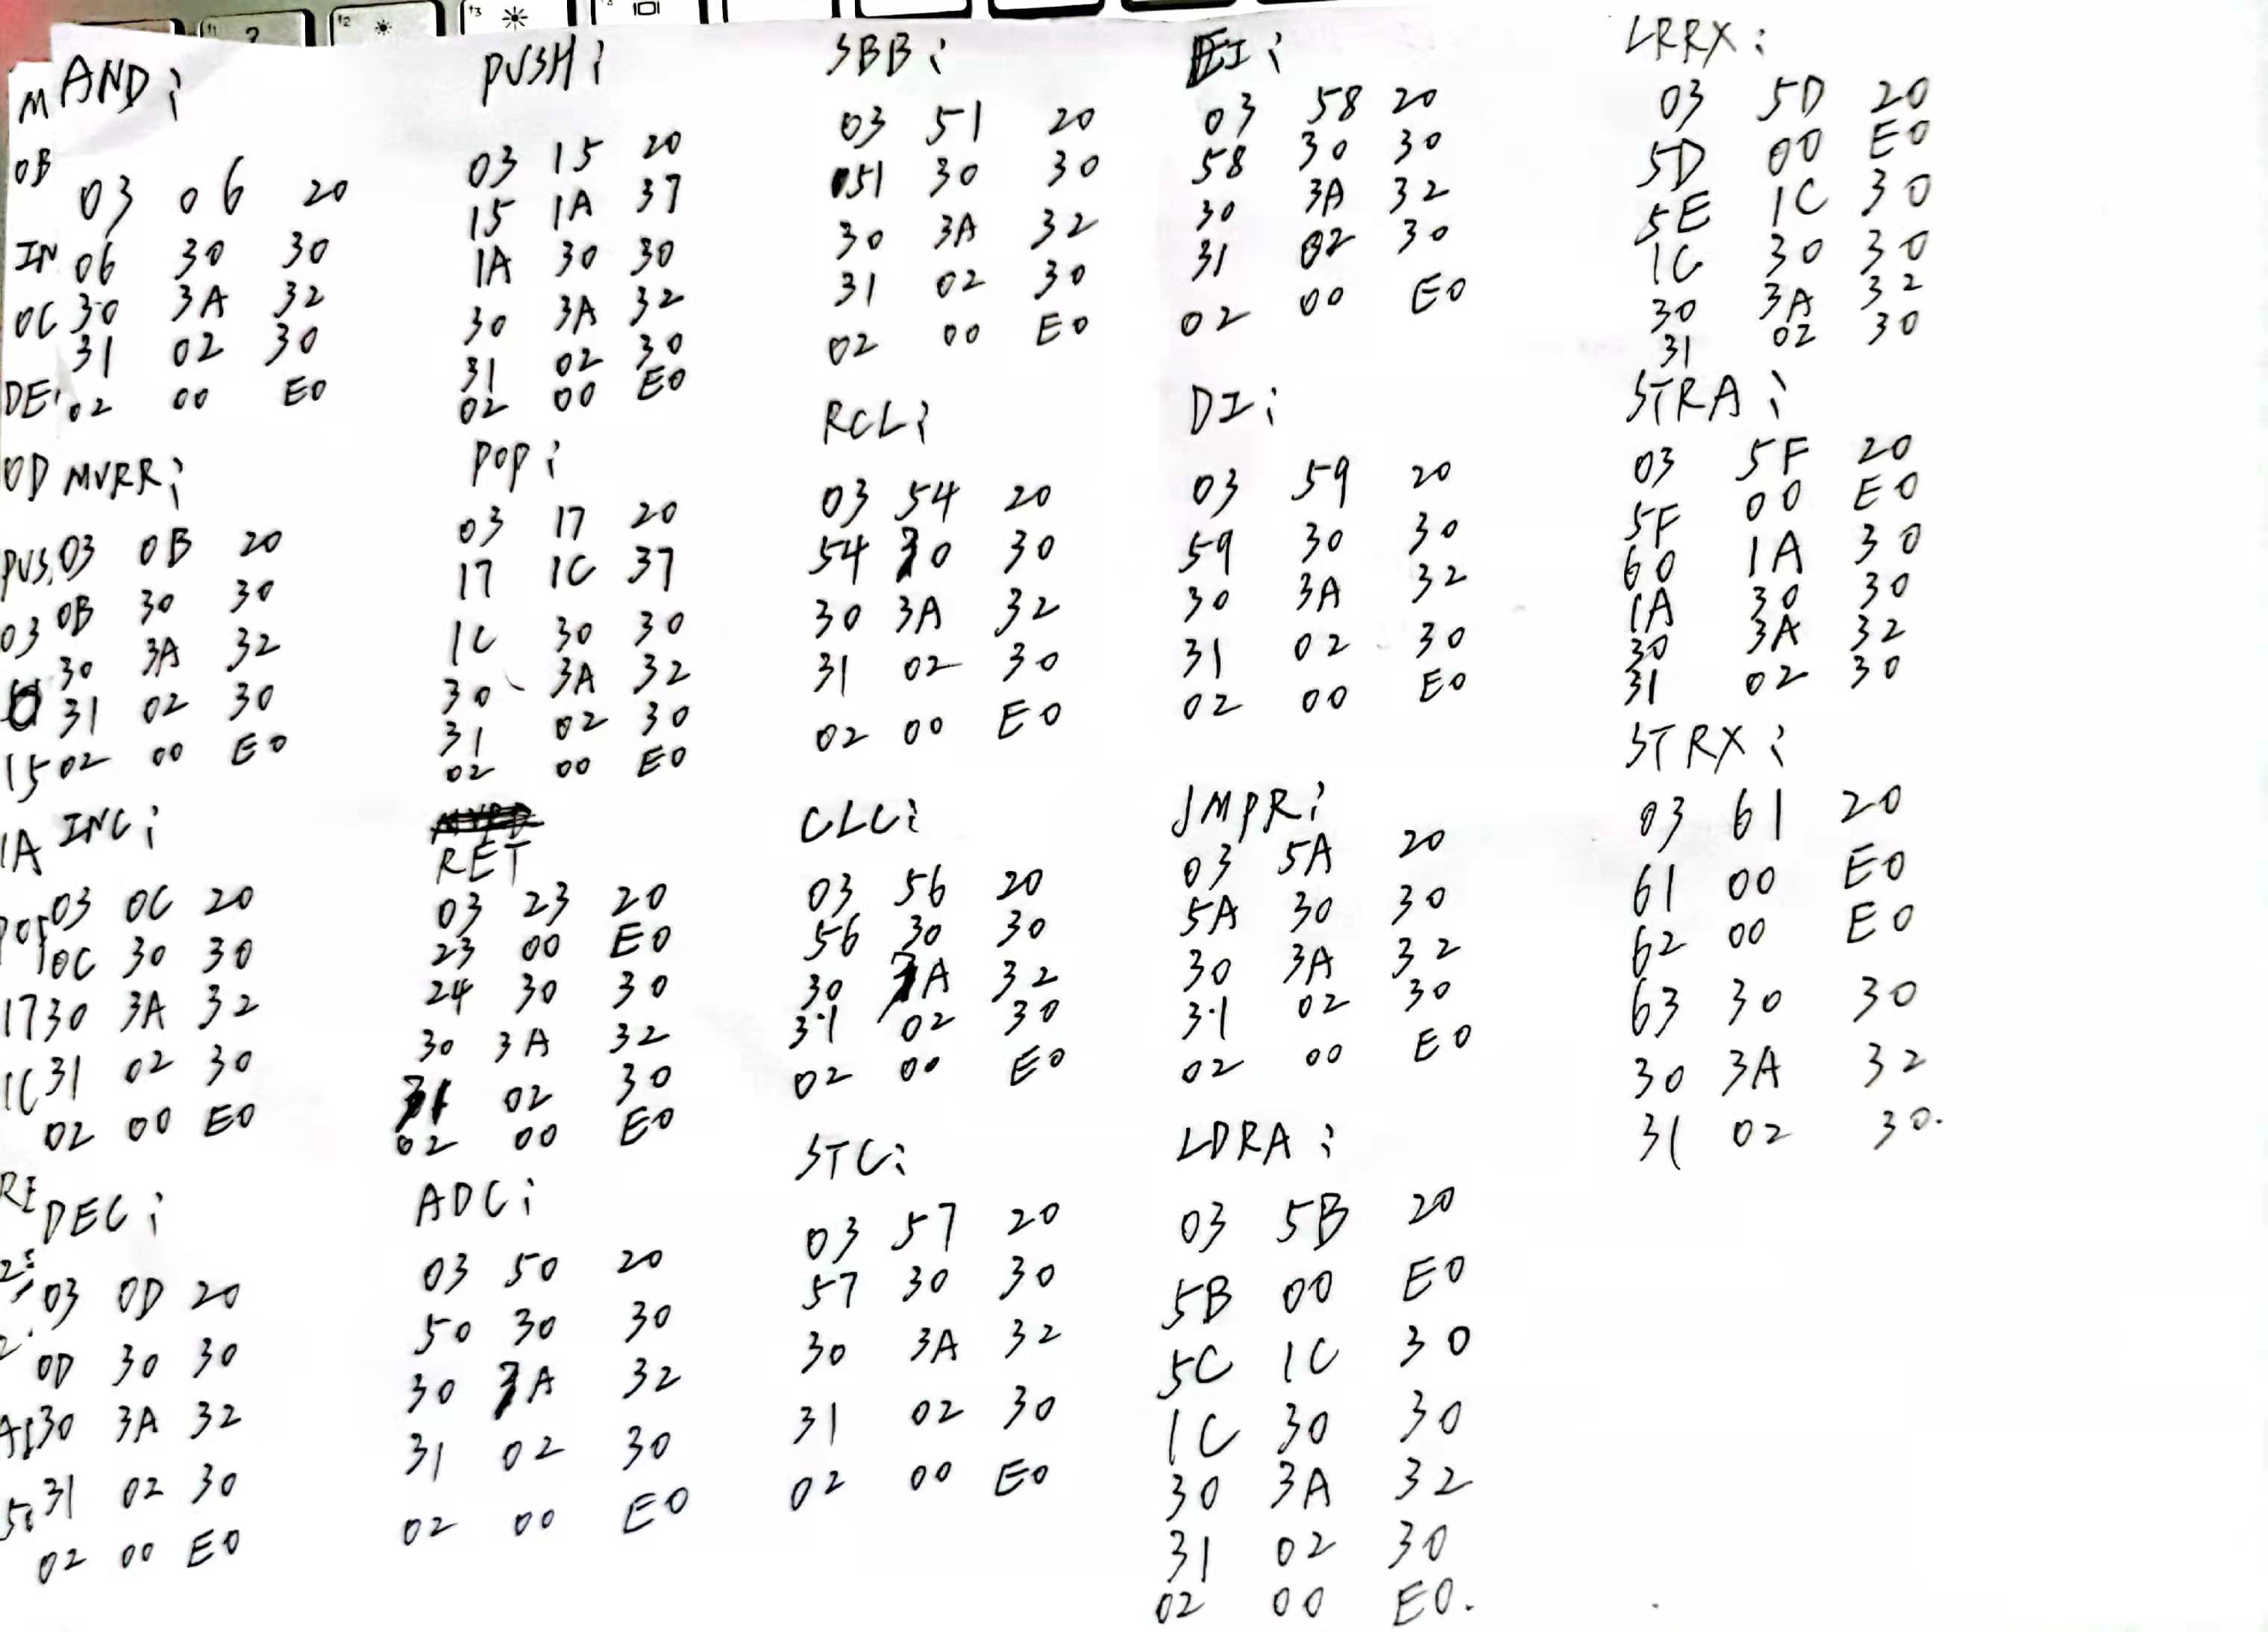 AND:
03 06 20
06 30 30
30 3A 32
31 02 30
02 00 E0
MVRR:
03 0B 20
0B 30 30
30 3A 32
31 02 30
02 00 E0
INC:
03 0C 20
0C 30 30
30 3A 32
31 02 30
02 00 E0
DEC:
03 0D 20
0D 30 30
30 3A 32
31 02 30
02 00 E0
PUSH:
03 15 20
15 1A 37
1A 30 30
30 3A 32
31 02 30
02 00 E0
POP:
03 17 20
17 1C 37
1C 30 30
30 3A 32
31 02 30
02 00 E0
RET
03 23 20
23 00 E0
24 30 30
30 3A 32
31 02 30
02 00 E0
ADC:
03 50 20
50 30 30
30 3A 32
31 02 30
02 00 E0
SBB:
03 51 20
051 30 30
30 3A 32
31 02 30
02 00 E0
RCL:
03 54 20
54 30 30
30 3A 32
31 02 30
02 00 E0
CLC:
03 56 20
56 30 30
30 3A 32
31 02 30
02 00 E0
STC:
03 57 20
57 30 30
30 3A 32
31 02 30
02 00 E0
EI:
03 58 20
58 30 30
30 3A 32
31 02 30
02 00 E0
DI:
03 59 20
59 30 30
30 3A 32
31 02 30
02 00 E0
JMPR:
03 5A 20
5A 30 30
30 3A 32
31 02 30
02 00 E0
LDRA:
03 5B 20
5B 00 E0
5C 1C 30
1C 30 30
30 3A 32
31 02 30
02 00 E0.
LRRX:
03 5D 20
5D 00 E0
5E 1C 30
1C 30 30
30 3A 32
31 02 30
STRA:
03 5F 20
5F 00 E0
60 1A 30
1A 30 30
30 3A 32
31 02 30
STRX:
03 61 20
61 00 E0
62 00 E0
63 30 30
30 3A 32
31 02 30.